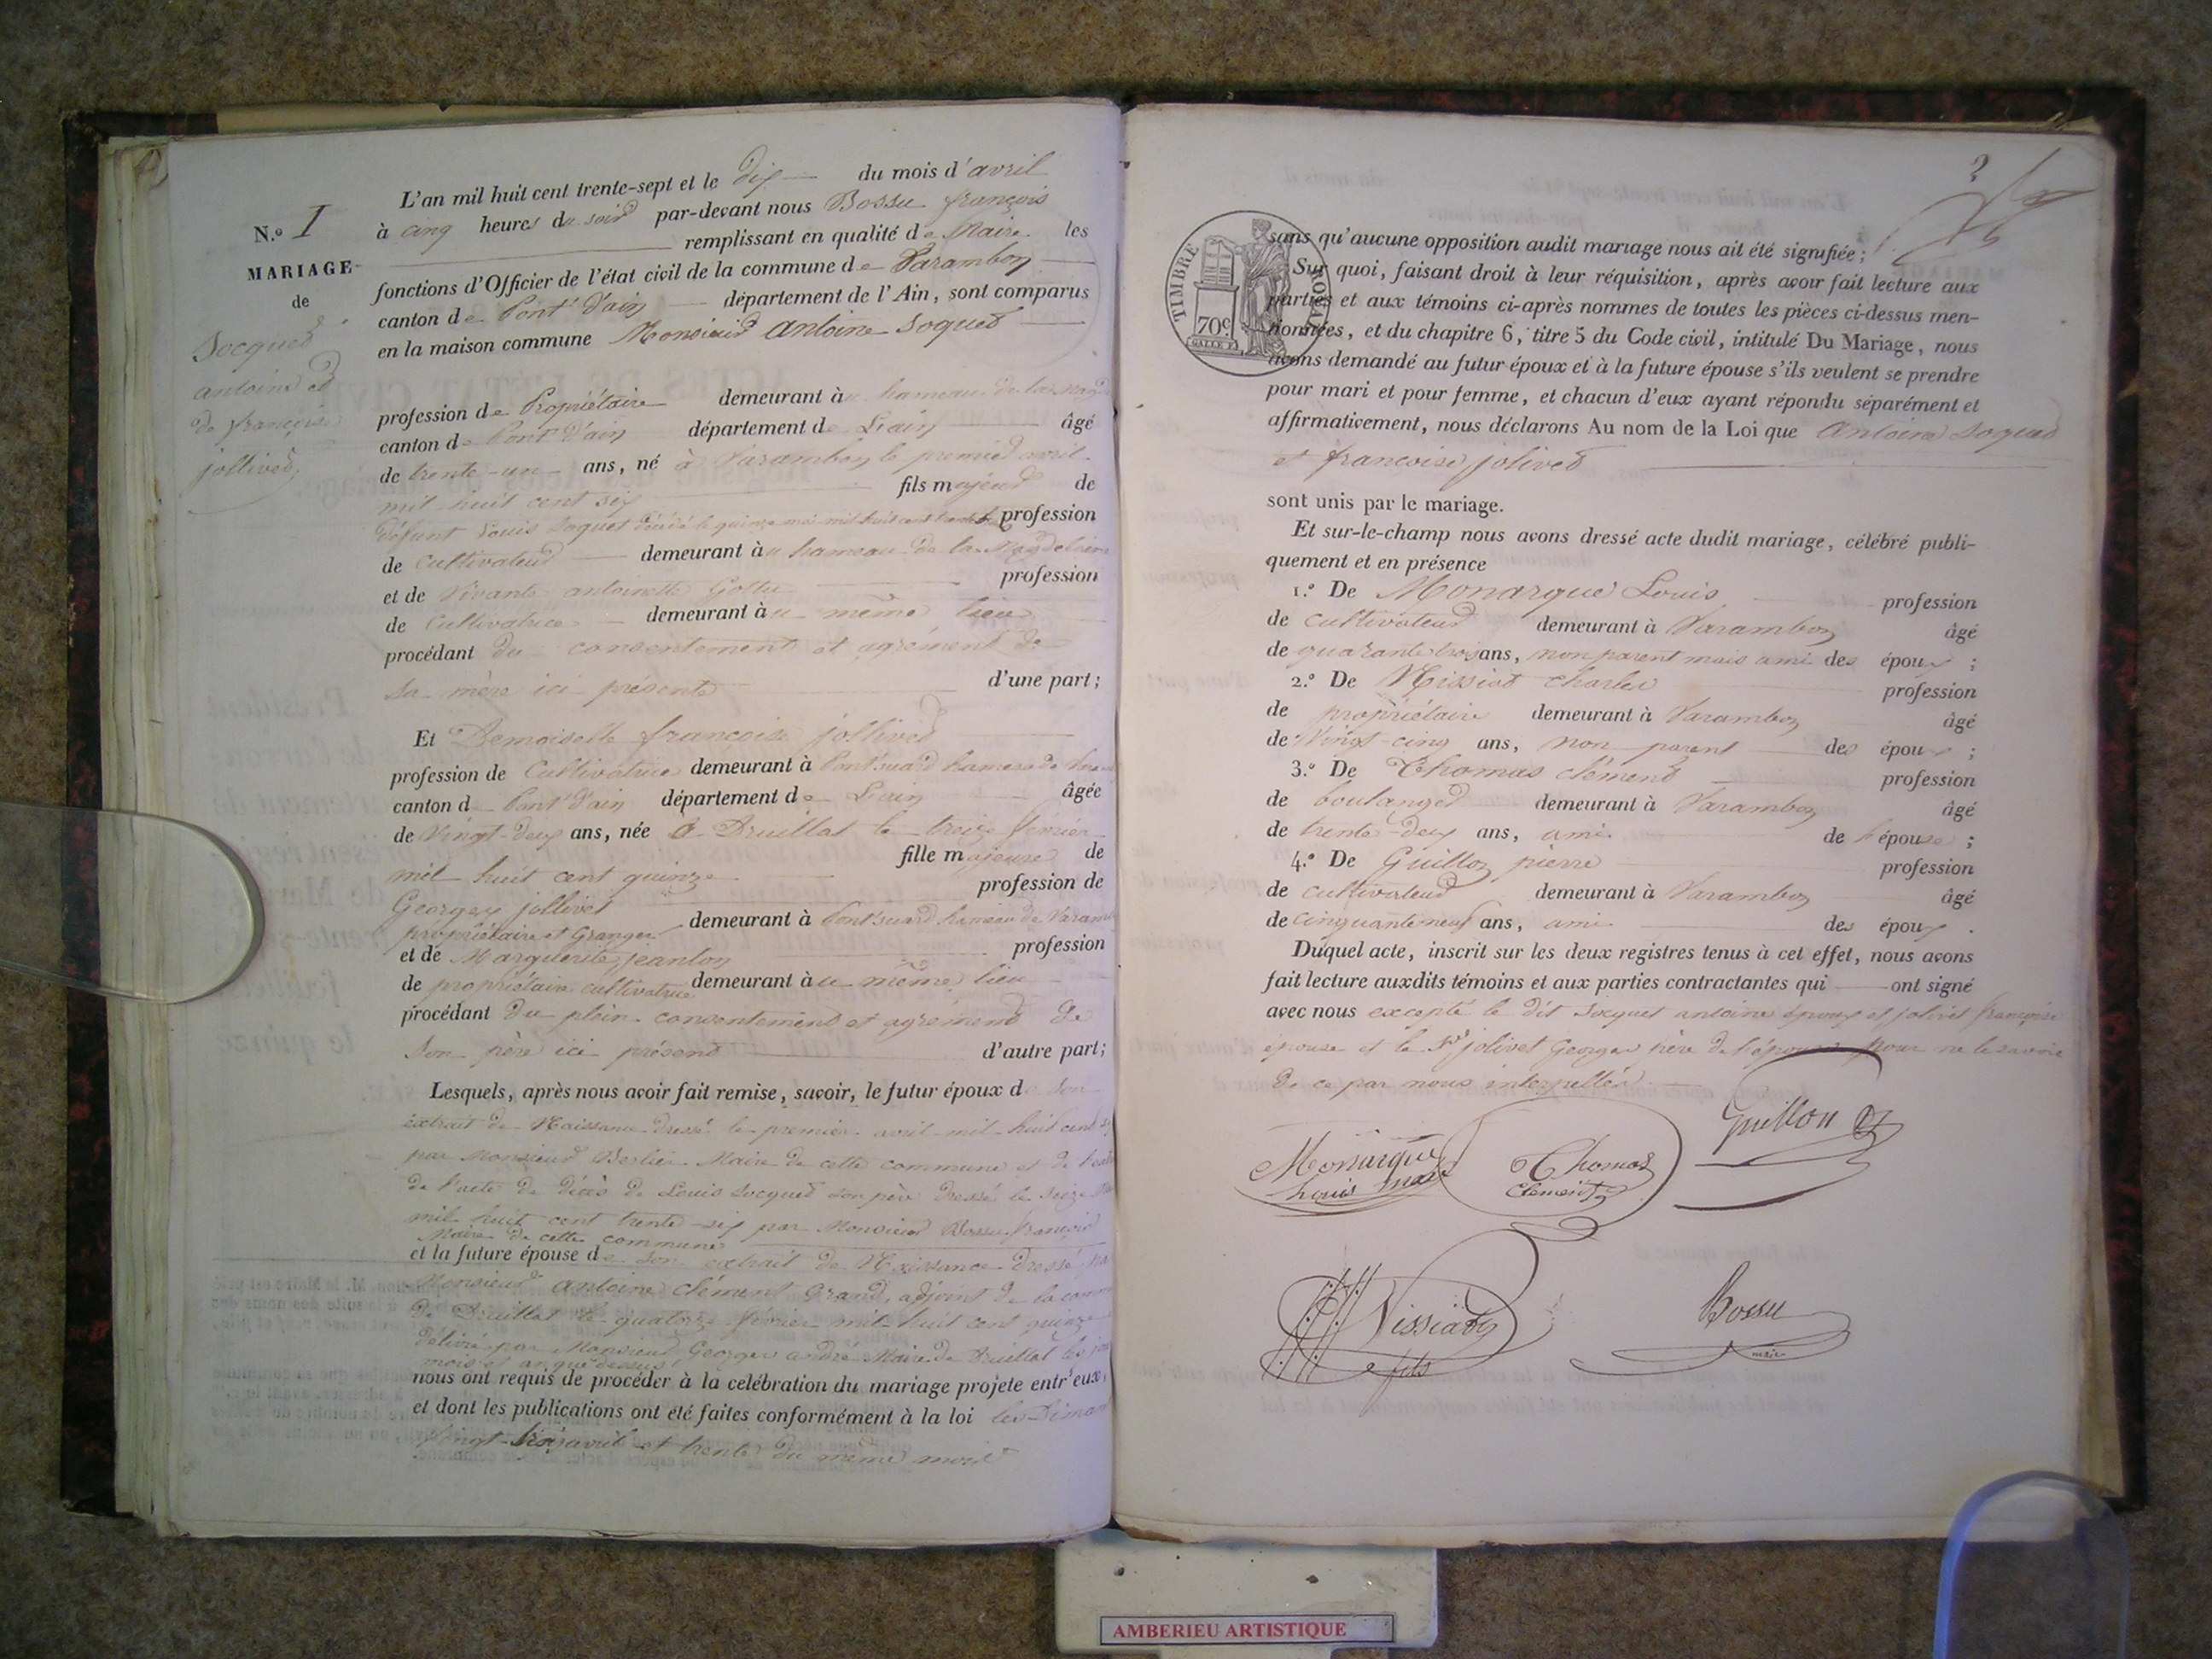 N.º 1
MARIAGE
de
Socquet
antoine et
de françoise
jollivet
L'an mil huit cent trente-sept et le dix du mois d'avril
à cinq heures du soir par-devant nous Bossu françois
remplissant en qualité de Maire les
fonctions d'Officier de l'état civil de la commune de Varambon
canton de Pont d'ain département de l'Ain, sont comparus
en la maison commune Monsieur antoine Soquet
profession de Propriétaire demeurant au hameau de la
canton de Pont d'ain département de L'ain âgé
de trente-un ans, né à Varambon le premier avril
mil huit cent six fils majeur de
défunt Louis Soquet décédé le quinze mai mil huit cent profession
de Cultivateur demeurant au hameau de la Magdeleine
et de Vivante antoinette Gottu profession
de Cultivatrice demeurant au même lieu
procédant du consentement et agrément de
sa mère ici présente d'une part;
Et Demoiselle françoise jollivet
profession de Cultivatrice demeurant à Pont suard hameau de
canton de Pont d'ain département de L'ain âgée
de Vingt-deux ans, née à Druillat le treize février
mil huit cent quinze fille majeure de
Georges jollivet profession de
propriétaire et Granger demeurant à Pont suard hameau de Varam
et de Marguerite jeanton profession
de propriétaire cultivatrice demeurant au même lieu
procédant du plein consentement et agrément de
son père ici présent d'autre part;
Lesquels, après nous avoir fait remise, savoir, le futur époux de son
extrait de Naissance dressé le premier avril mil huit cent six
par Monsieur Berlier Maire de cette commune et de
de l'acte de décès de Louis Socquet son père dressé le seize
mil huit cent trente-six par Monsieur Bossu françois
Maire de cette commune
et la future épouse de son extrait de Naissance dressé
Monsieur antoine clément Grand, adjoint de la com
de Druillat le quatorze février mil huit cent quinze
délivré par Monsieur Georges andré Maire de Druillat les jour
mois et an que dessus
nous ont requis de procéder à la celébration du mariage projete entr'eux,
et dont les publications ont été faites conformément à la loi les Diman
Vingt-trois avril et trente du même mois
2
TIMBRE ROYAL
70c
sans qu'aucune opposition audit mariage nous ait été signifiée;
Sur quoi, faisant droit à leur réquisition, après avoir fait lecture aux
parties et aux témoins ci-après nommes de toutes les pièces ci-dessus men-
tionnées, et du chapitre 6, titre 5 du Code civil, intitulé Du Mariage, nous
avons demandé au futur époux et à la future épouse s'ils veulent se prendre
pour mari et pour femme, et chacun d'eux ayant répondu séparément et
affirmativement, nous déclarons Au nom de la Loi que Antoine Soquet
et francoise jolivet
sont unis par le mariage.
Et sur-le-champ nous avons dressé acte dudit mariage, célébré publi-
quement et en présence
1.º De Monarque Louis profession
de cultivateur demeurant à Varambon âgé
de quarante trois ans, non parent mais ami des époux ;
2.º De Nissiat charles profession
de propriétaire demeurant à Varambon âgé
de Vingt-cinq ans, non parent des époux ;
3.º De Thomas clément profession
de boulanger demeurant à Varambon âgé
de trente-deux ans, ami de l'épouse ;
4.º De Guillon pierre profession
de cultivateur demeurant à Varambon âgé
de cinquante neuf ans, ami des époux .
Duquel acte, inscrit sur les deux registres tenus à cet effet, nous avons
fait lecture auxdits témoins et aux parties contractantes qui ont signé
avec nous excepté le dit Socquet antoine époux et jolivet françoise
épouse et le Sr jolivet Georges père de l'épouse pour ne le savoir
de ce par nous interpellés
Guillon
Monarque
Louis
Thomas
Clement
Nissiat
fils
Bossu
maire
AMBERIEU ARTISTIQUE